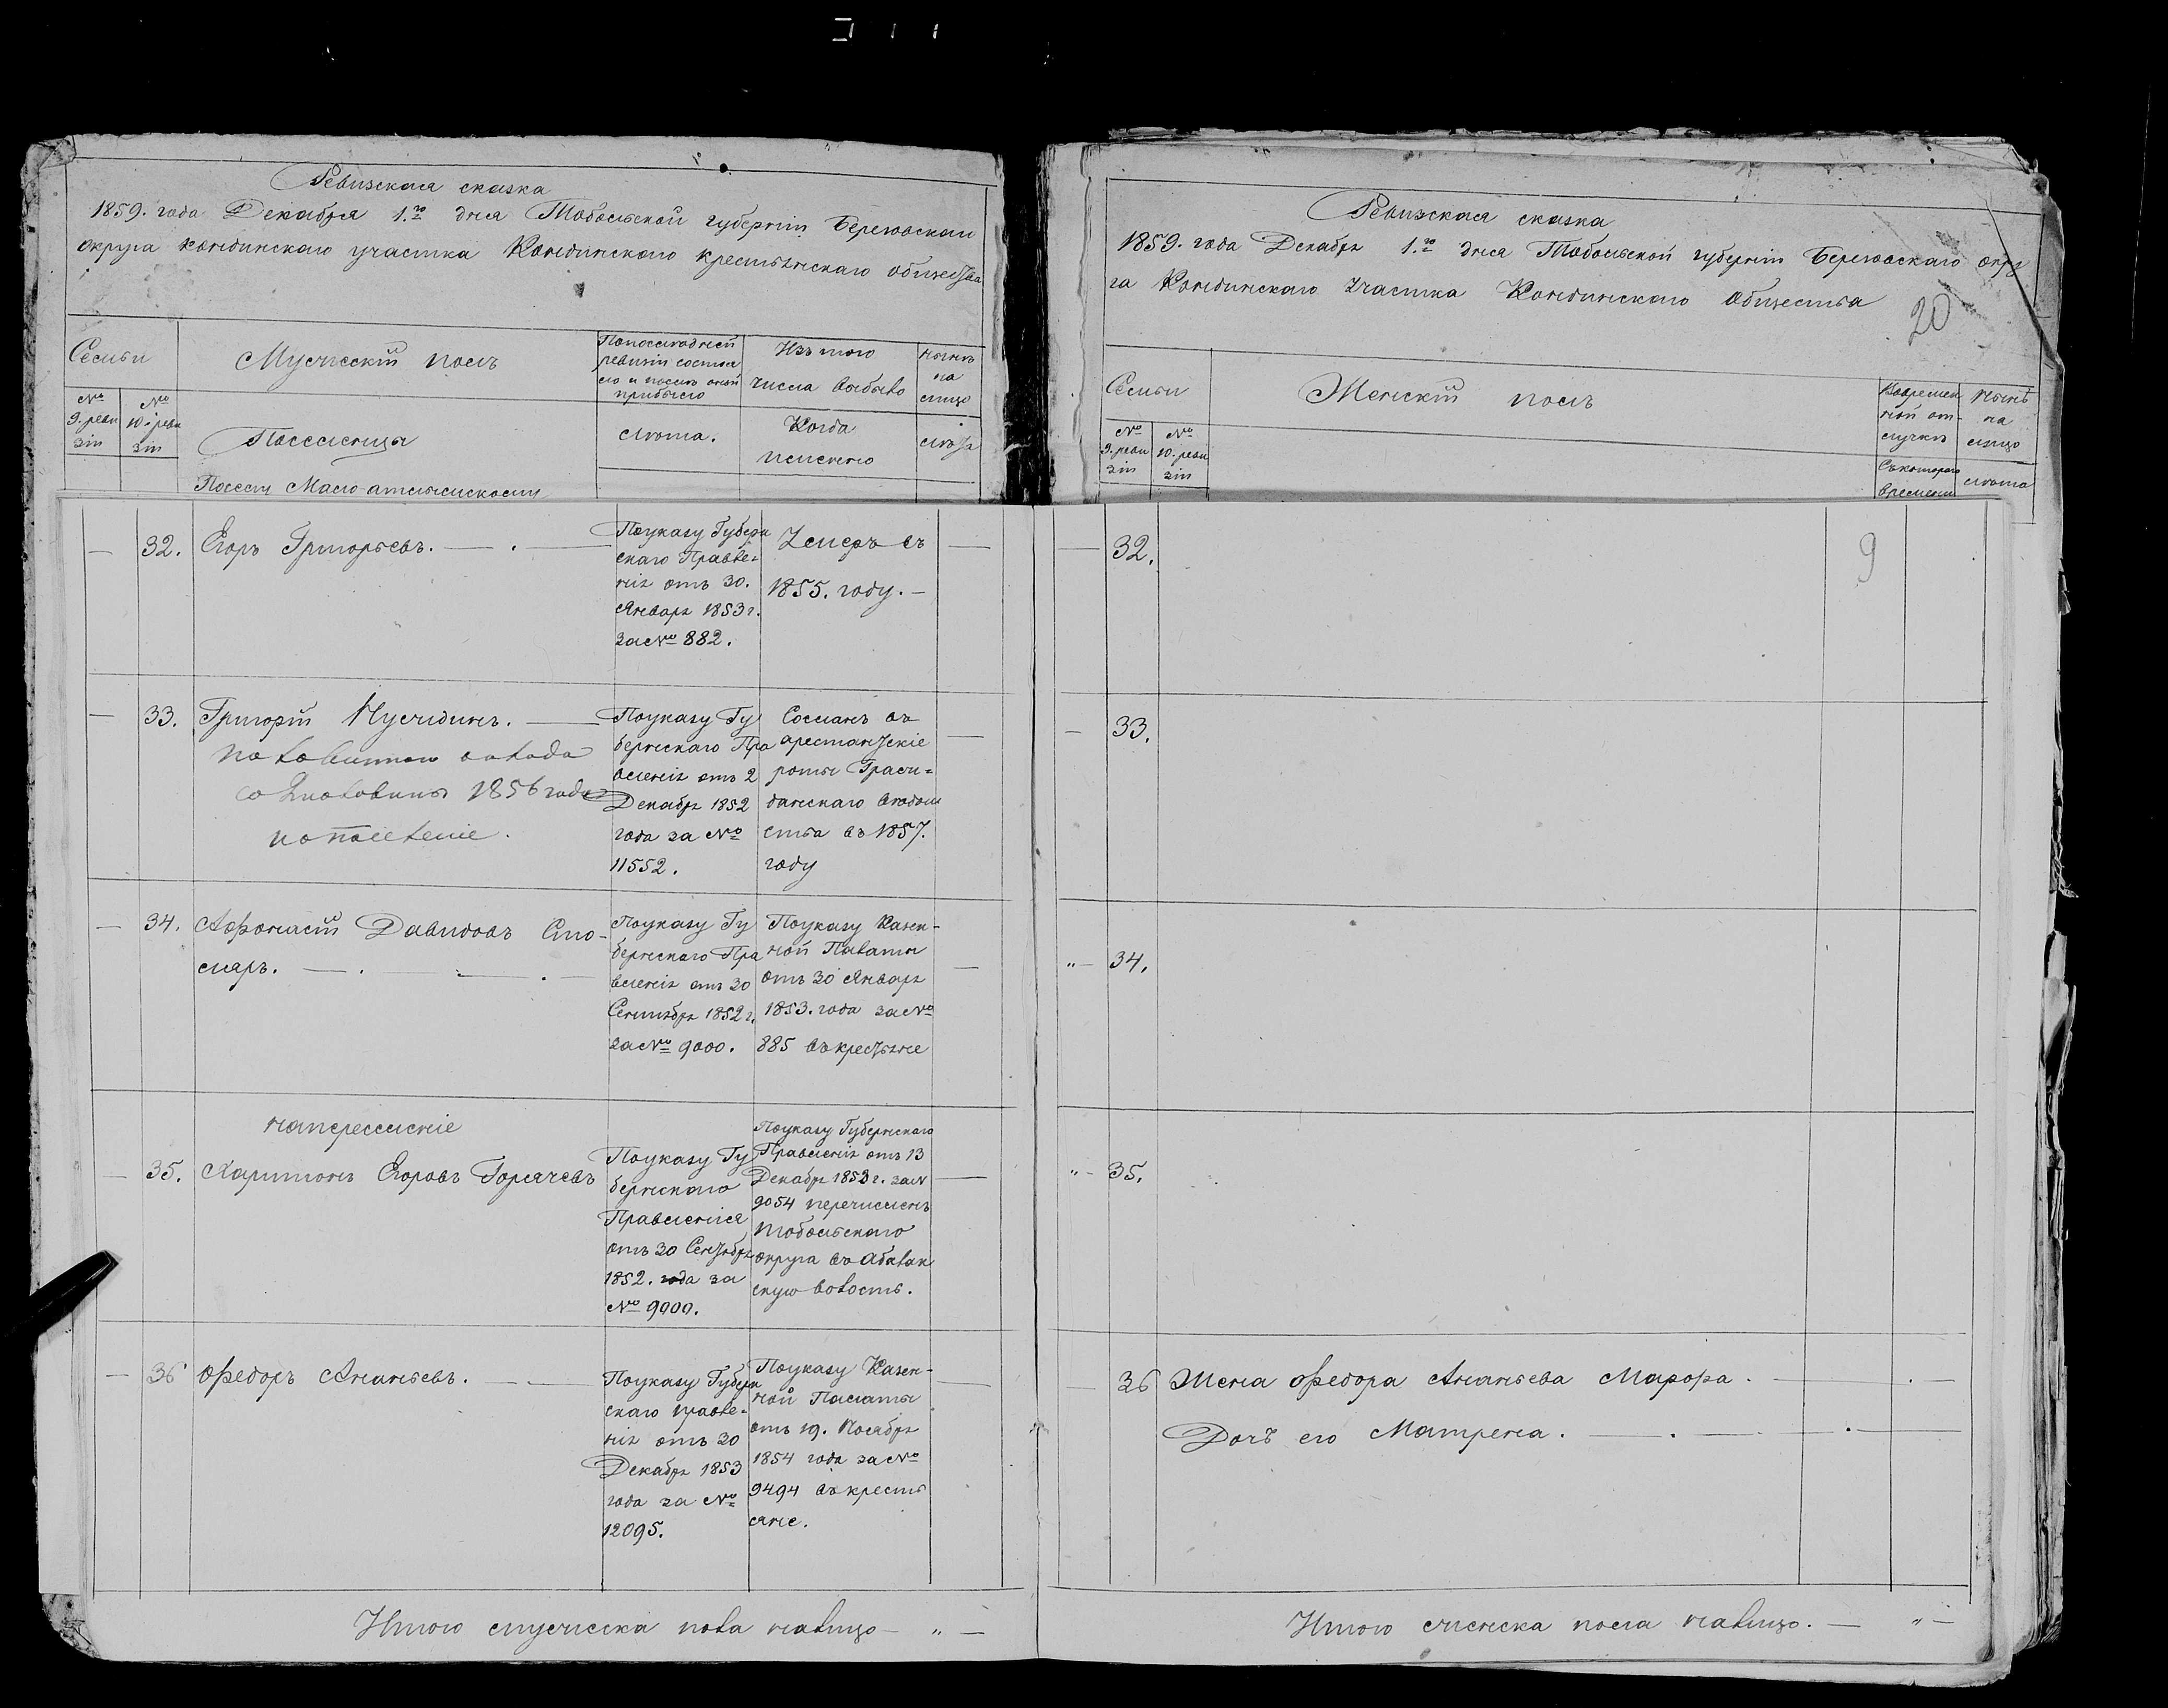 Ревизская сказка
1859. года Декабря 1.го дня Тобольской губерніи Березовскаго
округа Кондинскаго участка Кондинскаго крестьянскаго общества
Семьи
Мужескій полъ
По последней
ревизіи состоя
ло и после оной
прибыло
Изъ того
числа выбыло
ныне
на
лицо
№
9. реви
зіи
№
10. реви
зіи
Поселенцы
лета.
Когда
именно
лета
Посему Мало-атлымскому
32. Егоръ Григорьевъ.
По указу Губерн
скаго Правле=
нія отъ 30.
Января 1853 г.
за № 882.
Умеръ въ
1855. году.
33. Григорій Нуждинъ.
половиннаго оклада
со 2 половины 1856 года
По указу Гу
бернскаго Пра
вленія отъ 2
Декабря 1852
года за №
11552.
Сосланъ въ
арестантскіе
роты Граж=
данскаго ведом
ства въ 1857.
году
34. Афонасій Давидовъ Сто-
ляръ.
По указу Гу
бернскаго Пра
вленія отъ 30
Сентября 1852 г.
за № 9000.
По указу Казен-
ной Палаты
отъ 30 Января
1853. года за №
885 въ крестьяне
35. Харитонъ Егоровъ Горячевъ
По указу Гу
бернскаго
Правленія
отъ 30 Сентября
1852. года за
№ 9000.
По указу Губернскаго
Правленія отъ 13
Декабря 1853 г. за №
9054 перечисленъ
Тобольскаго
округа въ Абалак
скую волость.
36 Федоръ Ананьевъ.
По указу Губерн
скаго правле=
нія отъ 30
Декабря 1853
года за №
12095.
По указу Казен-
ной Палаты
отъ 19. Ноября
1854 года за №
9494 въ кресть
яне.
Итого мужеска пола налицо - " -
Ревизская сказка
1859. года Декабря 1.го дня Тобольской губерніи Березовскаго окру
га Кондинскаго Участка Кондинскаго Общества
20
Семьи
Женскій полъ
Во времен
ной от-
лучке
ныне
на
лицо
№
9. реви
зіи
№
10. реви
зіи
Съ котораго
времени
лета
32.
9
33.
" 34.
" 35.
36 Жена Федора Ананьева Марфа.
Дочь его Матрена.
Итого женска пола налицо. - " -